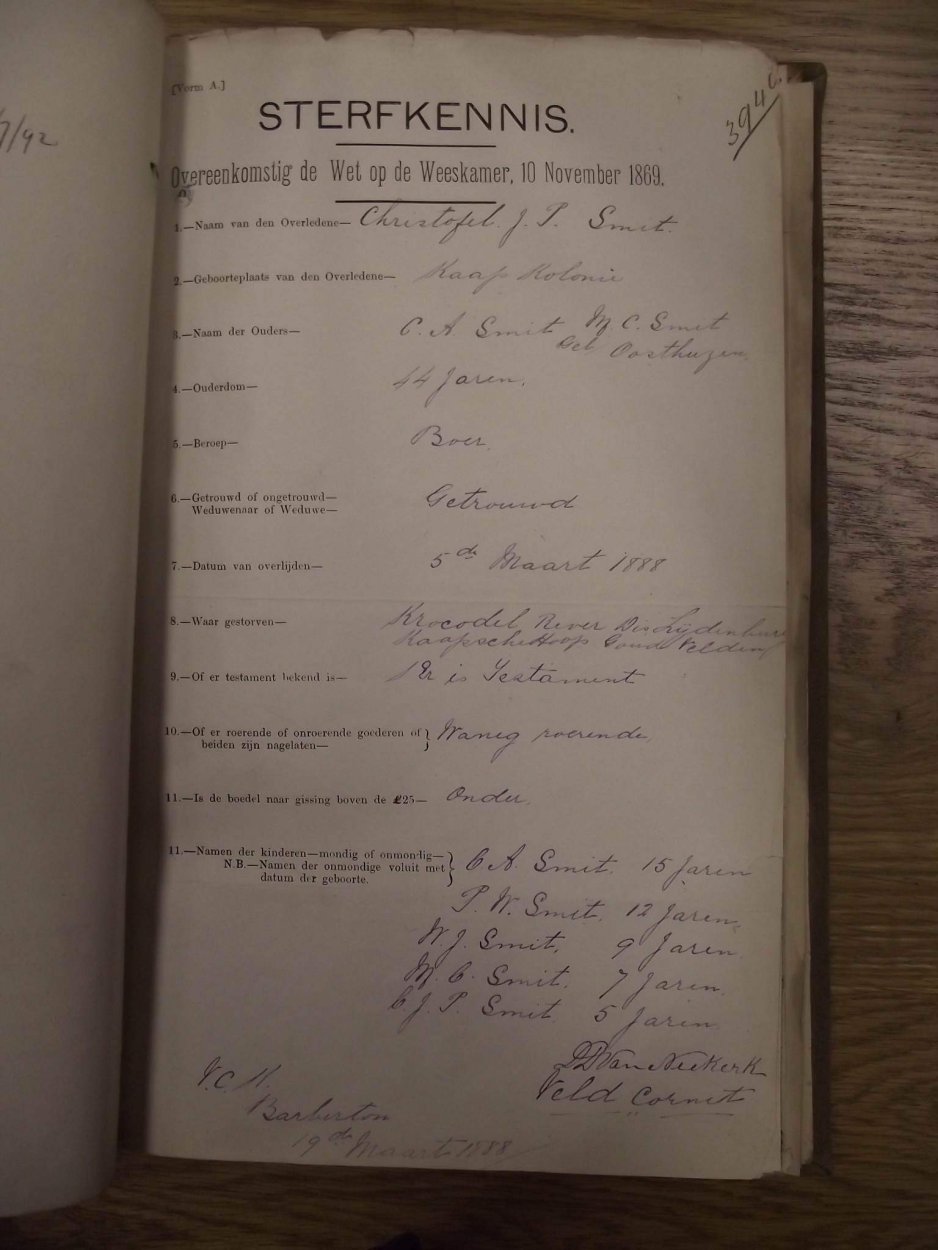 7/92
3946
[Vorm A.]
STERFKENNIS.
Overeenkomstig de Wet op de Weeskamer, 10 November 1869.
1.—Naam van den Overledene— Christofel. J. P. Smit.
2.—Geboorteplaats van den Overledene— Kaap Kolonie
3.—Naam der Ouders— C. A Smit M. C. Smit
Geb Oosthuzen.
4.—Ouderdom— 44 Jaren.
5.—Beroep— Boer.
6.—Getrouwd of ongetrouwd— Getrouwd
Weduwenaar of Weduwe—
7.—Datum van overlijden— 5de Maart 1888
8.—Waar gestorven— Krocodel Rever Dis Lijdenburg
Kaapsche Hoop Goud Velden
9.—Of er testament bekend is— is Testament
10.—Of er roerende of onroerende goederen of } Wanig roerende.
beiden zijn nagelaten—
11.—Is de boedel naar gissing boven de £25— Onder.
11.—Namen der kinderen—mondig of onmondig— } C A. Smit. 15 Jaren
N.B.—Namen der onmondige voluit met
datum der geboorte.
P. W. Smit. 12 Jaren.
W. J. Smit. 9 Jaren.
M. C. Smit. 7 Jaren.
C J. P. Smit. 5 Jaren
Van Niekerk
Veld Cornet
V. C K.
Barberton
19de Maart 1888